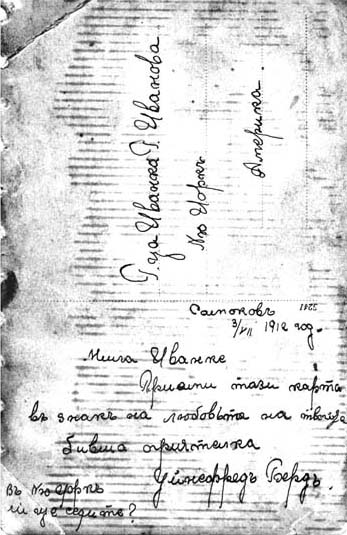 Г. ца Иванка Г. Иванова
Ню Йоркъ
Америка.
Самоковъ
3241
3/VII 1912 год.
Мила Иванке
Приеми тази карта
въ знакъ на любовьта на твоята
бивша приятелка
Уйнефредъ Бердъ.
Въ Ню Йоркъ
ли ще седите?